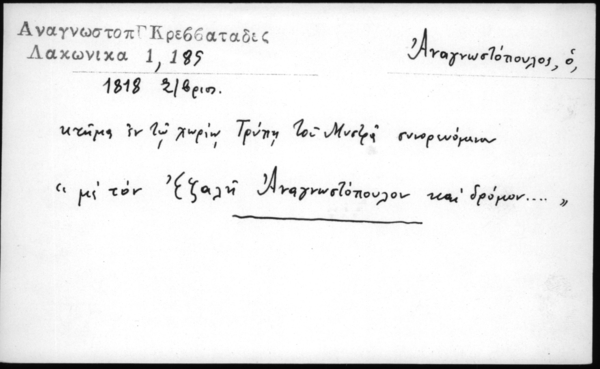 ΑναγνωστοπΓΚρεββαταδες
Λακωνικα 1, 185
Ἀναγνωστόπουλος, ὁ,
1818 2/βριο.
κτῆμα ἐν τῷ χωρίῳ Τρύπῃ τοῦ Μυστρᾶ συνορευόμενον
“ μὲ τὸν Ἐξαλῆ Ἀναγνωστόπουλον καὶ δρόμον.... ”